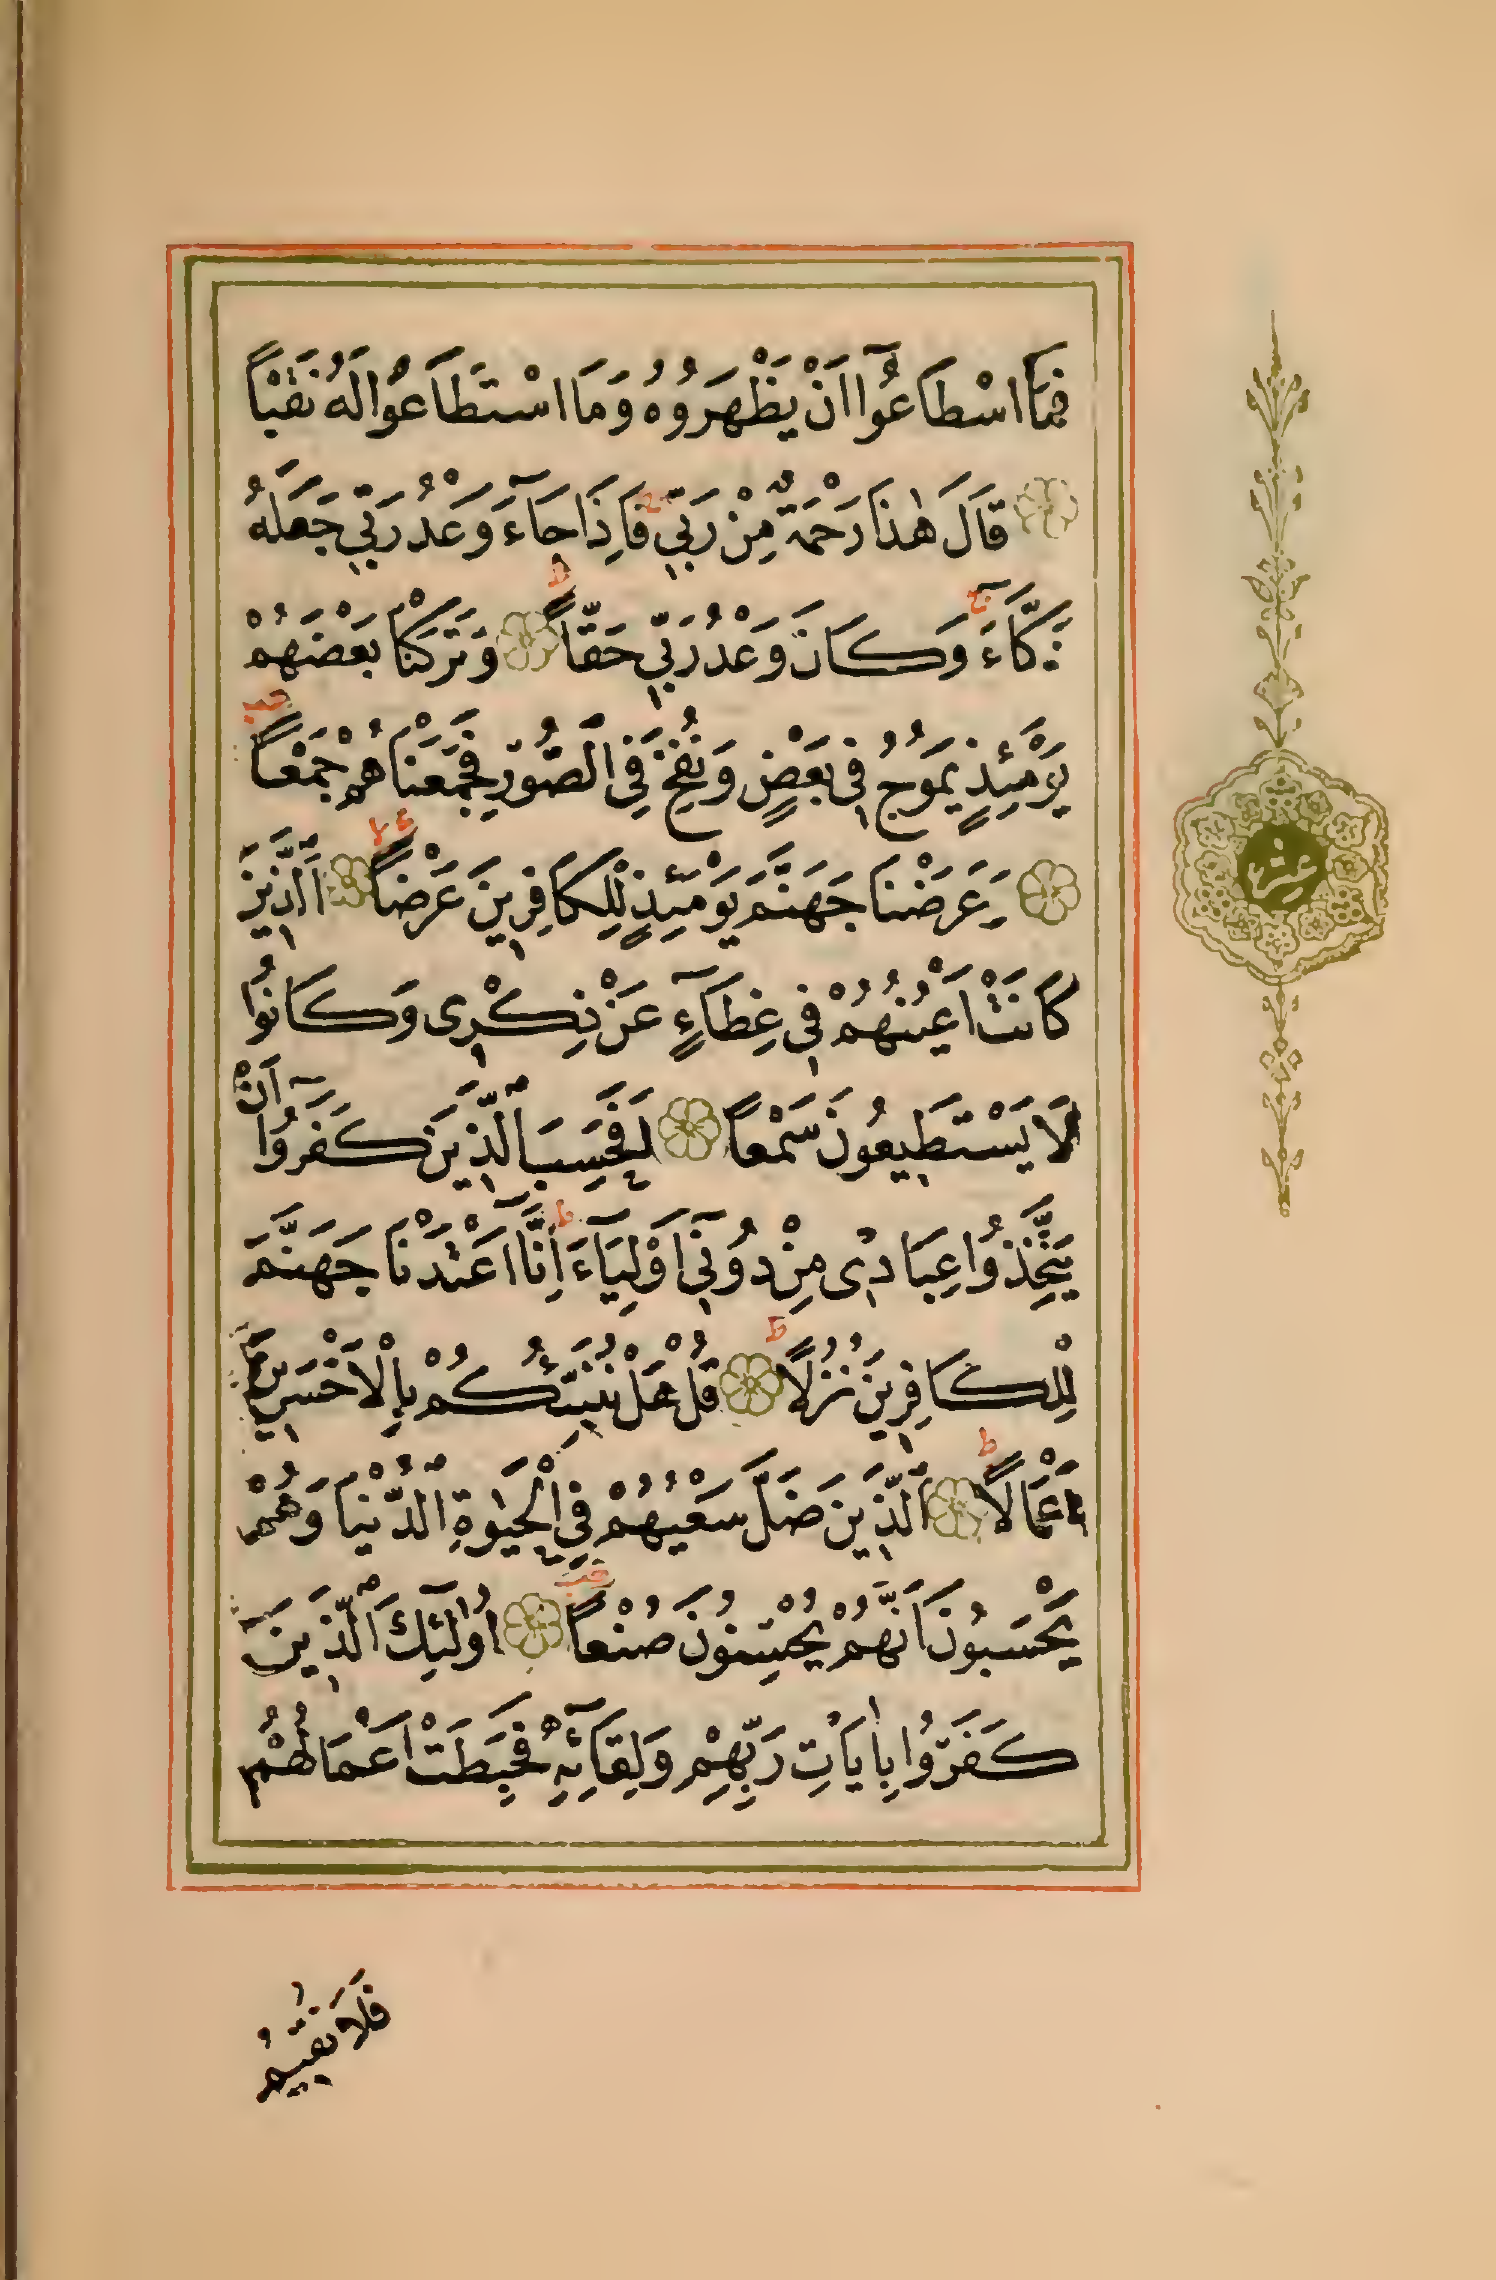 فَمَا اسْطَاعُوٓا اَنْ يَظْهَرُوهُ وَمَا اسْتَطَاعُوا لَهُ نَقْبًا
قَالَ هٰذَا رَحْمَةٌ مِنْ رَبّ۪ي ج فَاِذَا جَٓاءَ وَعْدُ رَبّ۪ي جَعَلَهُ
دَكَّٓاءَ ج وَكَانَ وَعْدُ رَبّ۪ي حَقًّا ط وَتَرَكْنَا بَعْضَهُمْ
يَوْمَئِذٍ يَمُوجُ ف۪ي بَعْضٍ وَنُفِخَ فِي الصُّورِ فَجَمَعْنَاهُمْ جَمْعًا
وَعَرَضْنَا جَهَنَّمَ يَوْمَئِذٍ لِلْكَافِر۪ينَ عَرْضًا اَلَّذ۪ينَ
كَانَتْ اَعْيُنُهُمْ ف۪ي غِطَٓاءٍ عَنْ ذِكْر۪ي وَكَانُوا
لَا يَسْتَط۪يعُونَ سَمْعًا اَفَحَسِبَ الَّذ۪ينَ كَفَرُٓوا اَنْ
يَتَّخِذُوا عِبَاد۪ي مِنْ دُون۪ٓي اَوْلِيَٓاءَ ط اِنَّٓا اَعْتَدْنَا جَهَنَّمَ
لِلْكَافِر۪ينَ نُزُلًا ط قُلْ هَلْ نُنَبِّئُكُمْ بِالْاَخْسَر۪ينَ
اَعْمَالًا ط اَلَّذ۪ينَ ضَلَّ سَعْيُهُمْ فِي الْحَيٰوةِ الدُّنْيَا وَهُمْ
يَحْسَبُونَ اَنَّهُمْ يُحْسِنُونَ صُنْعًا اُو۬لٰٓئِكَ الَّذ۪ينَ
كَفَرُوا بِاٰيَاتِ رَبِّهِمْ وَلِقَٓائِه۪ فَحَبِطَتْ اَعْمَالُهُمْ
فَلَا نُق۪يمُ